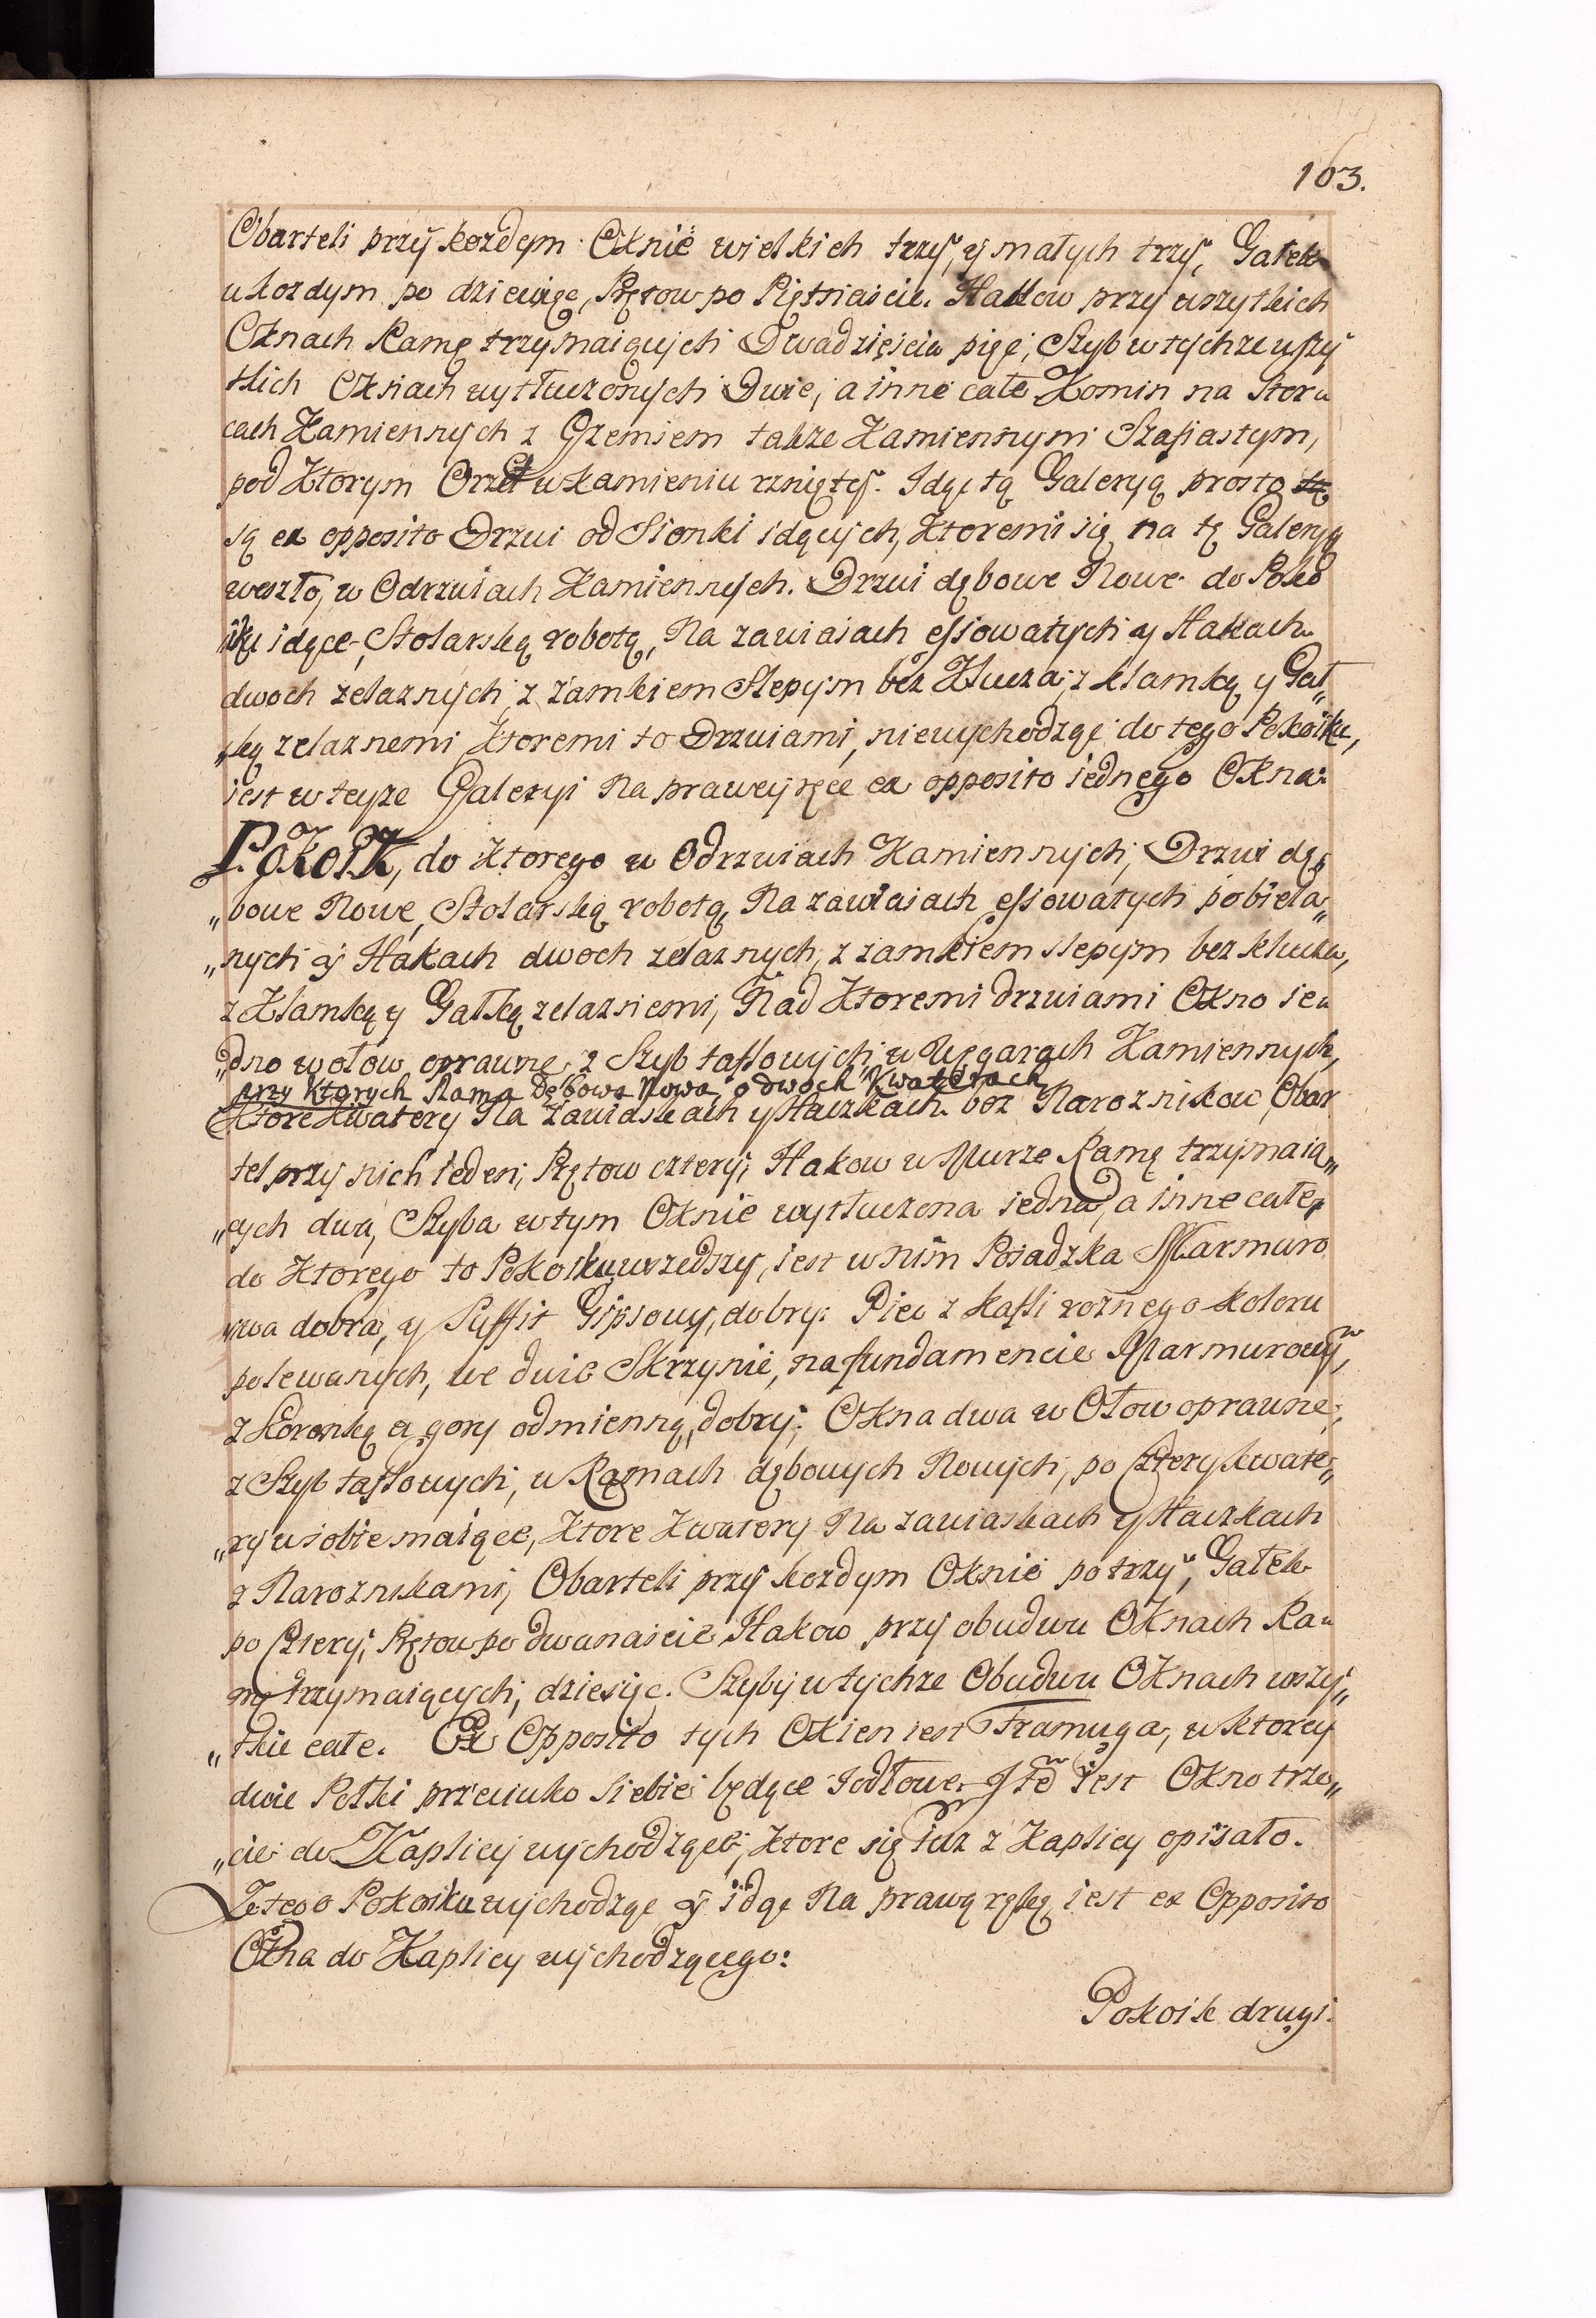 103.
Obarteli przy kozdym Oknie wielkich trzy, y małych trzy, Gałek
u kozdym po dziewięc, Prętow po Piętnascie. Hakow przy wszytkich
Oknach Ramę trzymaiących Dwadzięścia pięc, Szyb w tychze wszy
tkich Oknach wytłuczonych Dwie, a inne całe Komin na Stor„
cach Kamiennych z Gzemsem takze Kamiennym Szafiastym,
pod Ktorym Orzeł w kamieniu rznięty. Idąc tą Galeryą prosto
są ex opposito Drzwi od Sionki idących, Ktoremi się na tę Galeryą
weszło, w Odrzwiach Kamiennych. Drzwi dębowe Nowe do Poko
iku idące, Stolarską robotą, Na zawiasach essowatych y Hakach
dwoch zelaznych, z zamkiem Slepym bez Klucza, z klamką y Gał„
„ką zelaznemi Ktoremi to Drzwiami, niewychodząc do tego Pokoiku,
iest w teyze Galeryi Na prawey ręce ex opposito iednego Okna:
Pokoik, do Ktorego w Odrzwiach Kamiennych, Drzwi dę„
„bowe Nowe, Stolarską robotą, Na zawiasach essowatych pobiela„
„nych y Hakach dwoch zelaznych, z zamkiem slepym bez klucza,
z Klamką y Gałką zelaznemi, Nad Ktoremi drzwiami Okno ie„
„dno w ołow oprawne z Szyb taflowych, w Węgarach Kamiennych,
przy Ktorych Rama Dębowa Nowa, o dwoch Kwaterach
Ktore Kwatery Na Zawiaskach y Haczkach bez Naroznikow, Obar
tel przy nich ieden, Prętow cztery, Hakow w Murze Ramę trzymaią„
„cych dwa, Szyba w tym Oknie wytłuczona iedna, a inne całe,
do Ktorego to Pokoiku wszedszy, iest w nim Posadzka Marmuro
wa dobra, y Suffit Gipsowy, dobry. Piec z kafli roznego koloru
polewanych, we dwie Skrzynie, na fundamencie Marmurowỹ,
z Koronką u gory odmienną, dobry; Okna dwa w Ołow oprawne,
z Szyb taflowych, w Ramach dębowych Nowych, po cztery kwate„
„ry w sobie maiące, Ktore Kwatery Na zawiaskach y Haczkach
z Naroznikami, Obarteli przy kozdym Oknie po trzy, Gałek
po cztery, Prętow po dwanascie Hakow przy obudwu Oknach Ra„
mę trzymaiących, dziesięc. Szyby w tychze Obudwu Oknach wszy„
„tkie całe. Ex Opposito tych Okien iest Framuga, w ktorey
dwie Połki przeciwko siebie będące Jodłowe. Itẽ iest Okno trze„
„cie do Kaplicy wychodzące, Ktore się iuz z Kaplicy opisało.
Z tego Pokoiku wychodząc y idąc Na prawą rękę iest ex Opposito
Okna do Kaplicy wychodzącego:
Pokoik drugi.